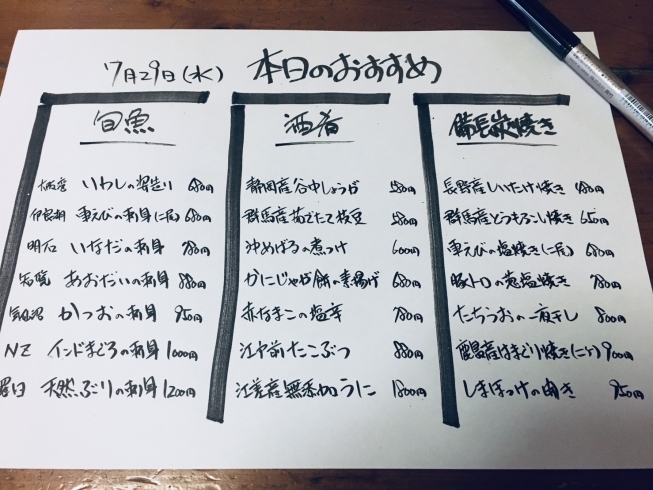 7月29日(水) 本日のおすすめ
旬魚
大阪産 いわしの姿造り 680円
伊良湖 車えびの刺身(二尾) 680円
明石 いなだの刺身 780円
あおだいの刺身 880円
気仙沼 かつおの刺身 950円
NZ インドまぐろの刺身 1000円
天然ぶりの刺身 1200円
酒肴
静岡産谷中しょうが 580円
群馬産茹でたて枝豆 580円
沖めばるの煮つけ 600円
かにじゃが餅の素揚げ 680円
赤なまこの塩辛 780円
江戸前たこぶつ 880円
江差産無添加うに 1800円
備長炭焼き
長野産しいたけ焼き 480円
群馬産とうもろこし焼き 650円
車えびの塩焼き(二尾) 680円
豚トロの葱塩焼き 780円
たちうおの一夜干し 800円
鹿島産はまぐり焼き(二ケ) 900円
しまほっけの開き 950円